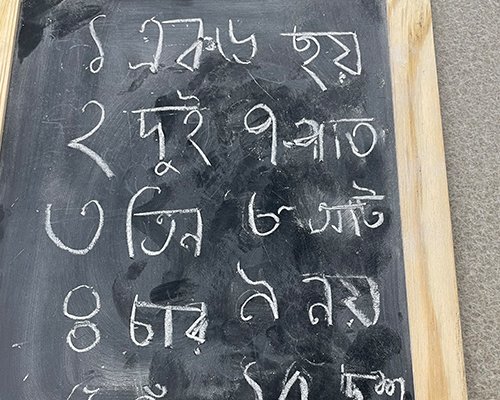 ১ এক ৬ ছয়
২ দুই ৭ সাত
৩ তিন ৮ আট
৪ চার ৯ নয়
১০ দশ